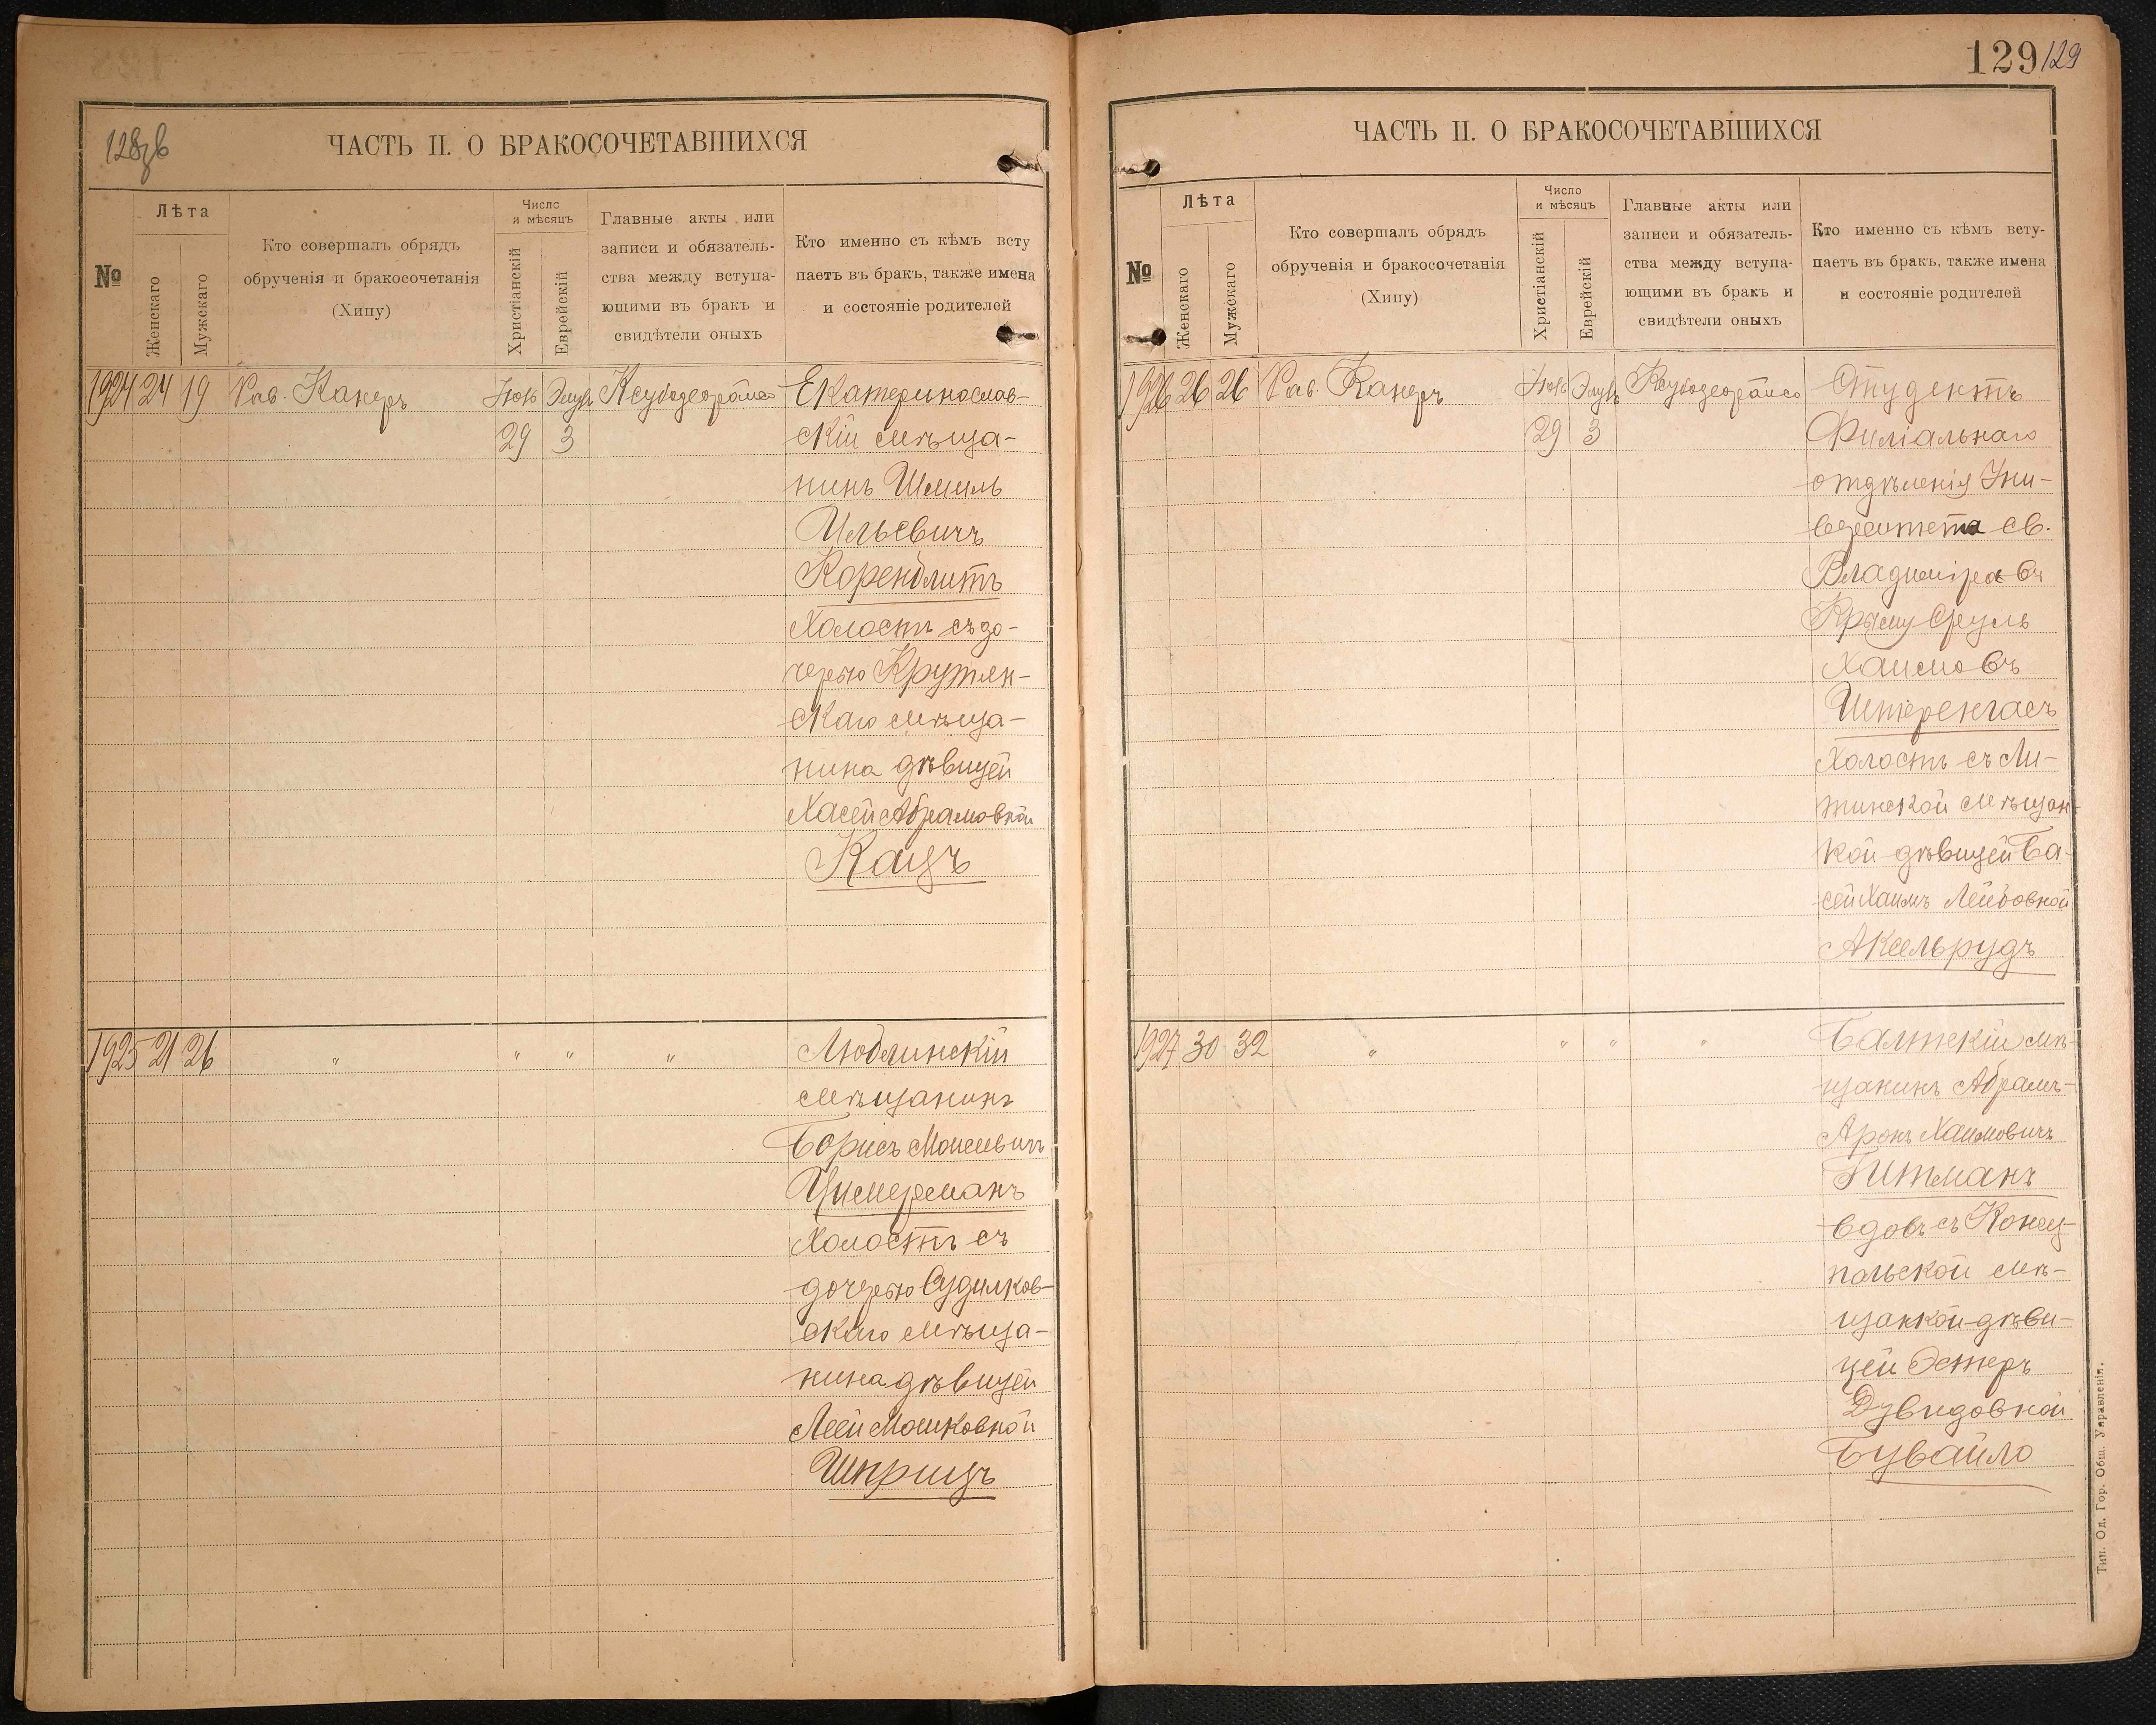 128 зв
ЧАСТЬ II. О БРАКОСОЧЕТАВШИХСЯ
№
Лѣта
Женскаго
Мужскаго
Кто совершалъ обрядъ
обрученія и бракосочетанія
(Хипу)
Число
и мѣсяцъ
Христіанскій
Еврейскій
Главные акты или
записи и обязатель-
ства между вступа-
ющими въ бракъ и
свидѣтели оныхъ
Кто именно съ кѣмъ всту
паетъ въ бракъ, также имена
и состояніе родителей
1924 24 19 Рав. Канеръ Элулъ Екатеринослав-
29 3 скій мѣща-
нинъ Шмиль
Ильевичъ
Коренблитъ
Холостъ съ до-
черью Крутян-
скаго мѣща-
нина дѣвицей
Хасей Абрамовной
Кацъ
1925 21 26 " " " " Люблинскій
мѣщанинъ
Борисъ Моисеевичъ
Цимерманъ
Холостъ съ
дочерью Судилков-
скаго мѣща-
нина дѣвицей
Леей Мошковной
Шприцъ
129 129
ЧАСТЬ II. О БРАКОСОЧЕТАВШИХСЯ
№
Лѣта
Женскаго
Мужскаго
Кто совершалъ обрядъ
обрученія и бракосочетанія
(Хипу)
Число
и мѣсяцъ
Христіанскій
Еврейскій
Главные акты или
записи и обязатель-
ства между вступа-
ющими въ бракъ и
свидѣтели оныхъ
Кто именно съ кѣмъ всту-
паетъ въ бракъ, также имена
и состояніе родителей
1926 26 26 Рав. Канеръ Элулъ Студентъ
29 3 Филіальнаго
отдѣленія Уни-
верситета св.
Владиміра въ
Крыму Сруль
Хаимовъ
Штеренгасъ
Холостъ съ Ли-
тинской мѣщан-
кой дѣвицей Ба-
сей Хаимъ Лейбовной
Аксельрудъ
1927 30 32 " " " " Балтскій мѣ-
щанинъ Абрамъ-
Аронъ Хаимовичъ
Гитманъ
вдовъ съ Конец-
польской мѣ-
щанкой-дѣви-
цей Эстеръ
Дувидовной
Бувайло
Тип. Од. Гор. Общ. Управленія.